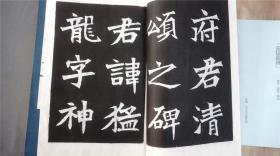 府君清
頌之碑
君諱猛
龍字神